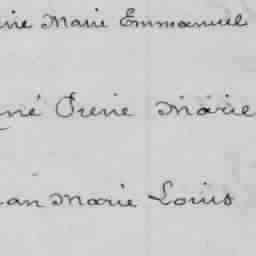 ine Marie Emmanuel
né Irene Marie
an Marie Louis